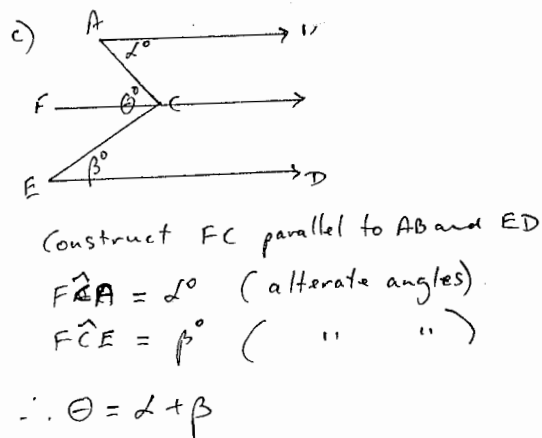 c)
A
α°
F
θ°
C
β°
E
D
Construct FC parallel to AB and ED
FĈA = α° (alterate angles)
FĈE = β° ( " " )
∴ θ = α + β